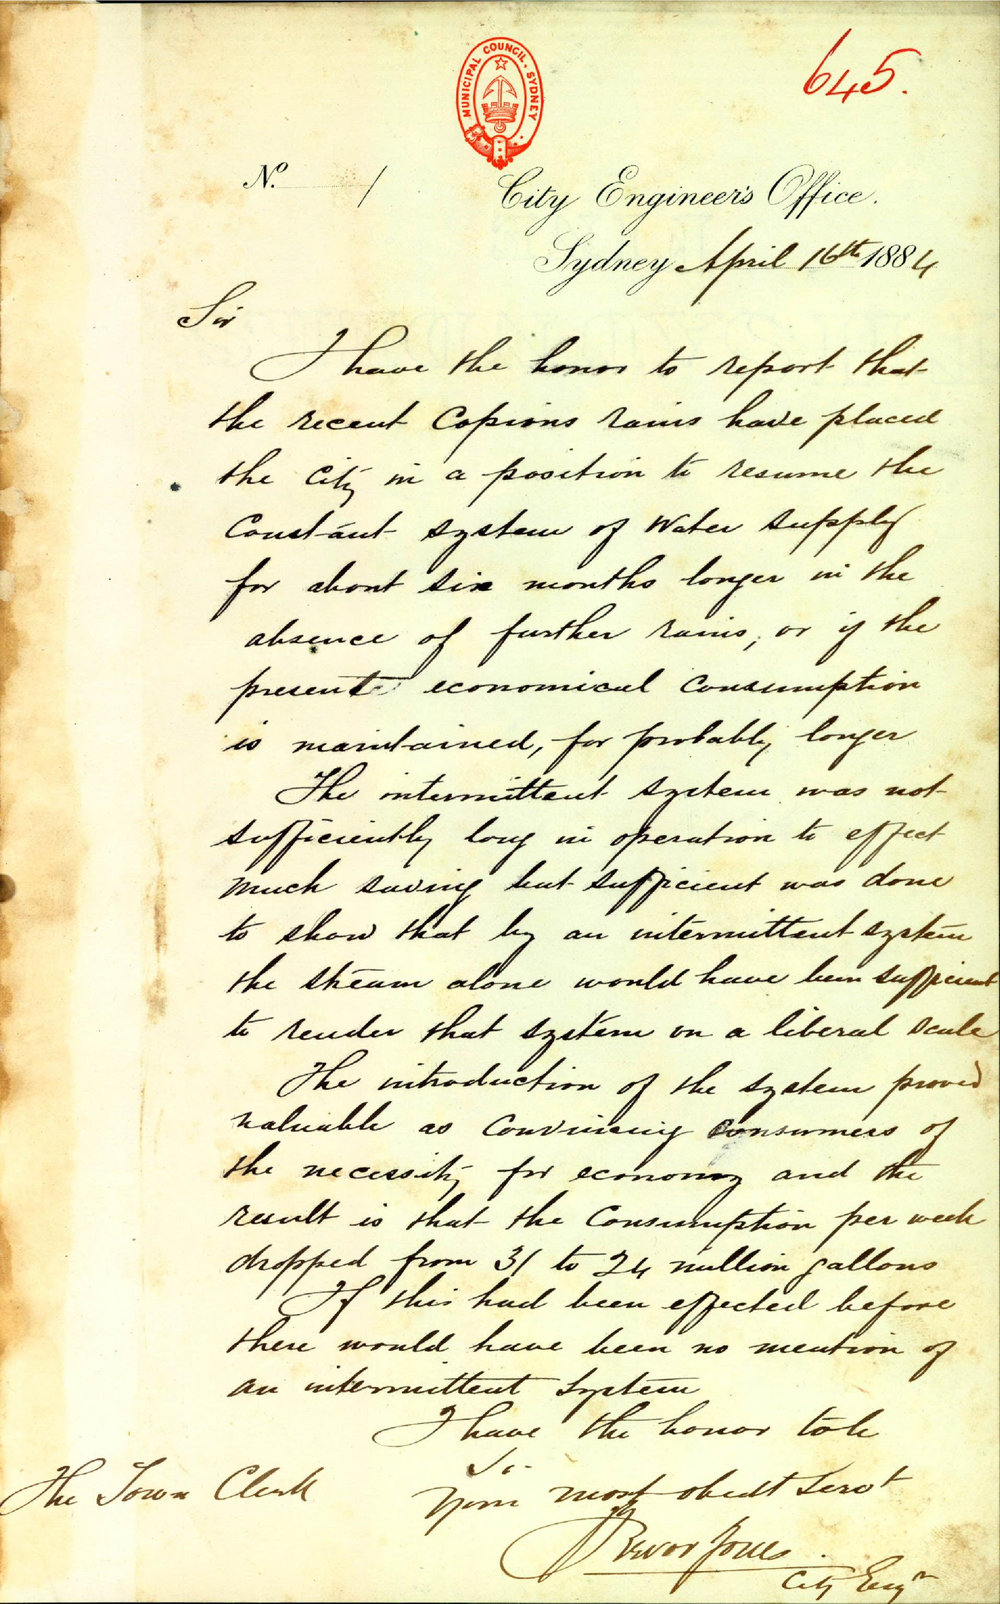 645.
MUNICIPAL COUNCIL. SYDNEY
No. /
City Engineer's Office.
Sydney April 16th 1884
Sir
I have the honor to report that
the recent Copious rains have placed
the City in a position to resume the
Constant system of Water supply
for about six months longer in the
absence of further rains, or if the
present economical Consumption
is maintained, for probably longer
The intermittent system was not
sufficiently long in operation to effect
much saving but sufficient was done
to show that by an intermittent system
the stream alone would have been sufficient
to render that system on a liberal scale
The introduction of the system proved
valuable as Convincing Consumers of
the necessity for economy and the
result is that the Consumption per week
dropped from 31 to 24 million gallons
If this had been effected before
there would have been no mention of
an intermittent System
I have the honor to be
Sir
Your most obedt Servt
Trevor Jones
City Engr
The Town Clerk